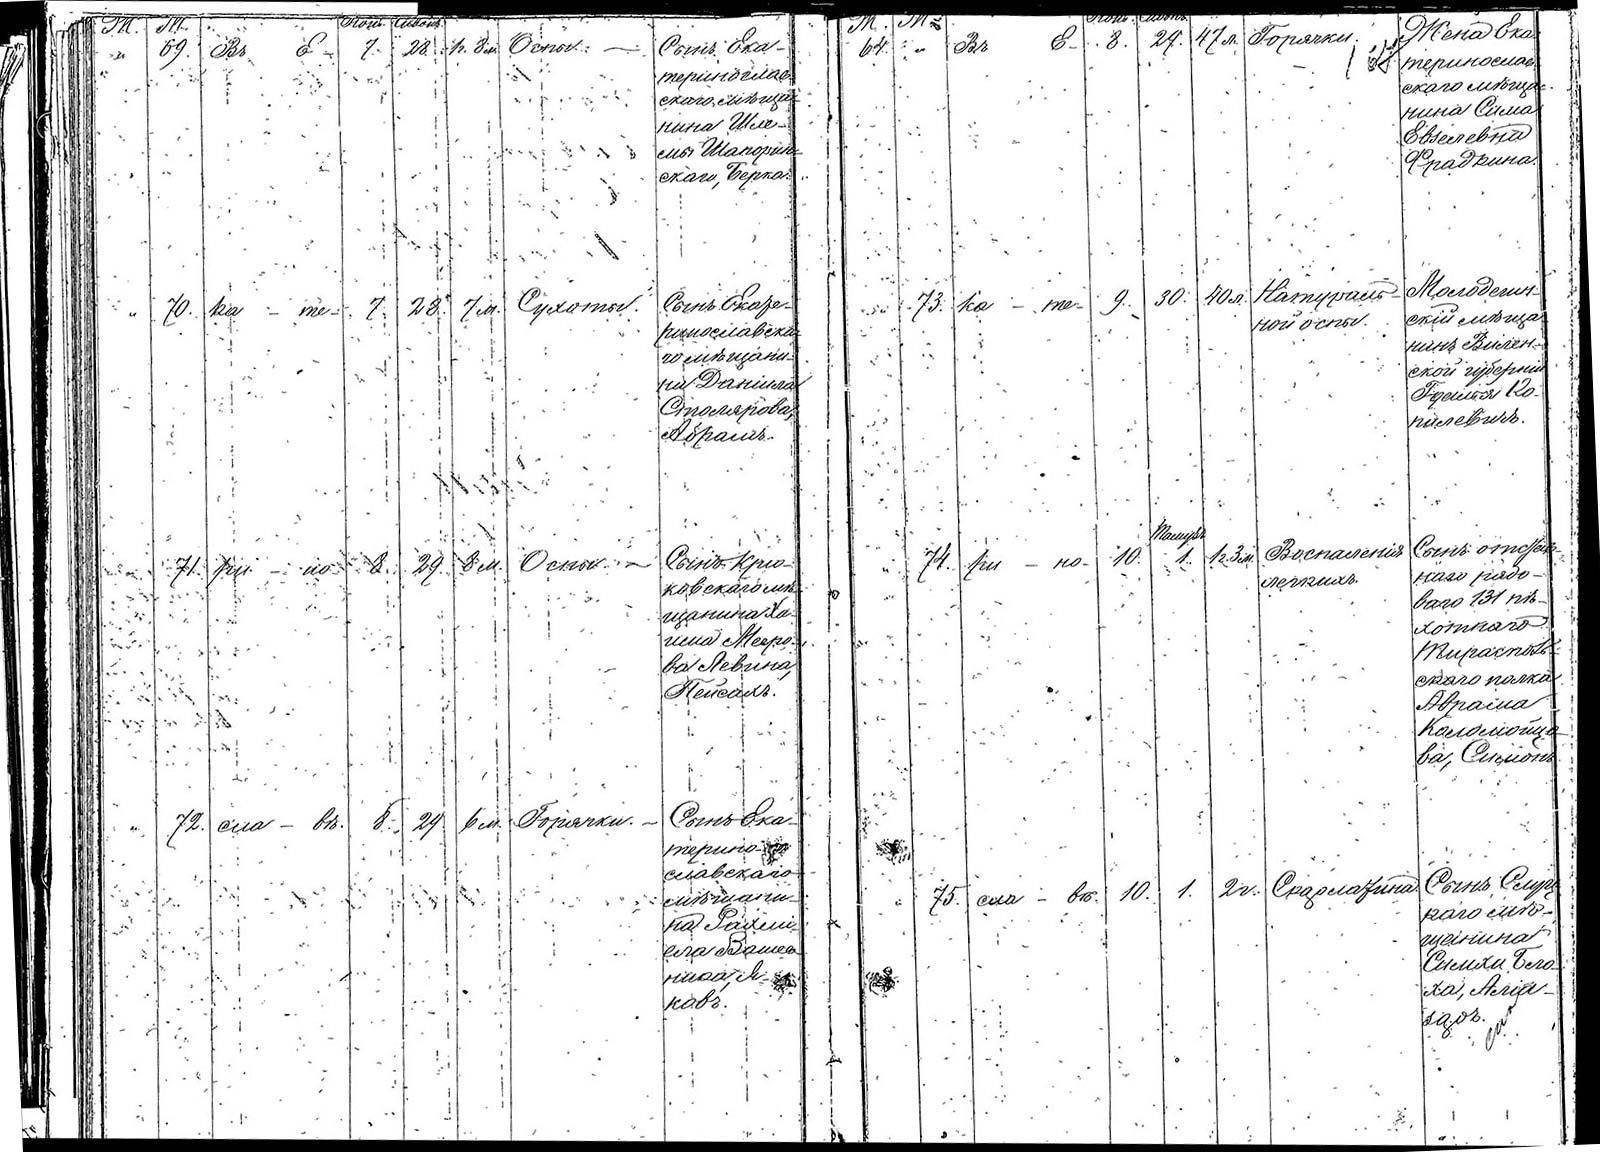 Ж. М. Іюнь Сивонъ
69. Въ Е- 7. 28. 1г. 8м. Оспы. — Сынъ Ека-
теринослав-
скаго мѣща-
нина Шле-
мы Шапорин-
скаго, Берка.
70. ка - те- 7. 28. 7м. Сухоты. Сынъ Екате-
ринославска-
го мѣщани-
на Даніила
Столярова,
Абрамъ.
71. ри - но- 8. 29. 8м. Оспы. — Сынъ Крю-
ковскаго мѣ-
щанина Ха-
има Мееро-
ва Левина,
Пейсахъ.
72. сла - вѣ. 8. 29. 6м. Горячки. — Сынъ Ека-
терино-
славскаго
мѣщани-
на Рахми-
ела
ника, Я-
ковъ.
Ж. М. Іюнь Сивонъ
64. Въ Е- 8. 29. 47л. Горячки. Жена Ека-
теринослав-
скаго мѣща-
нина Сима
Евзелевна
Фрадкина.
73. ка - те- 9. 30. 40л. Натураль-
ной оспы.
Молодечин-
скій мѣща-
нинъ Вилен-
ской губерніи
Ко-
пилевичъ.
Тамузъ
74. ри - но- 10. 1. 1г. 3м. Воспаленія
легкихъ.
Сынъ отстав-
наго рядо-
ваго 131 пѣ-
хотнаго
Тирасполь-
скаго полка
Аврама
Коломойце-
ва, Симонъ.
75. сла - вѣ. 10. 1. 2г. Скарлатина Сынъ Слуц-
каго мѣ-
щанина
Симхи Бло-
ха, Аліа-
заръ.